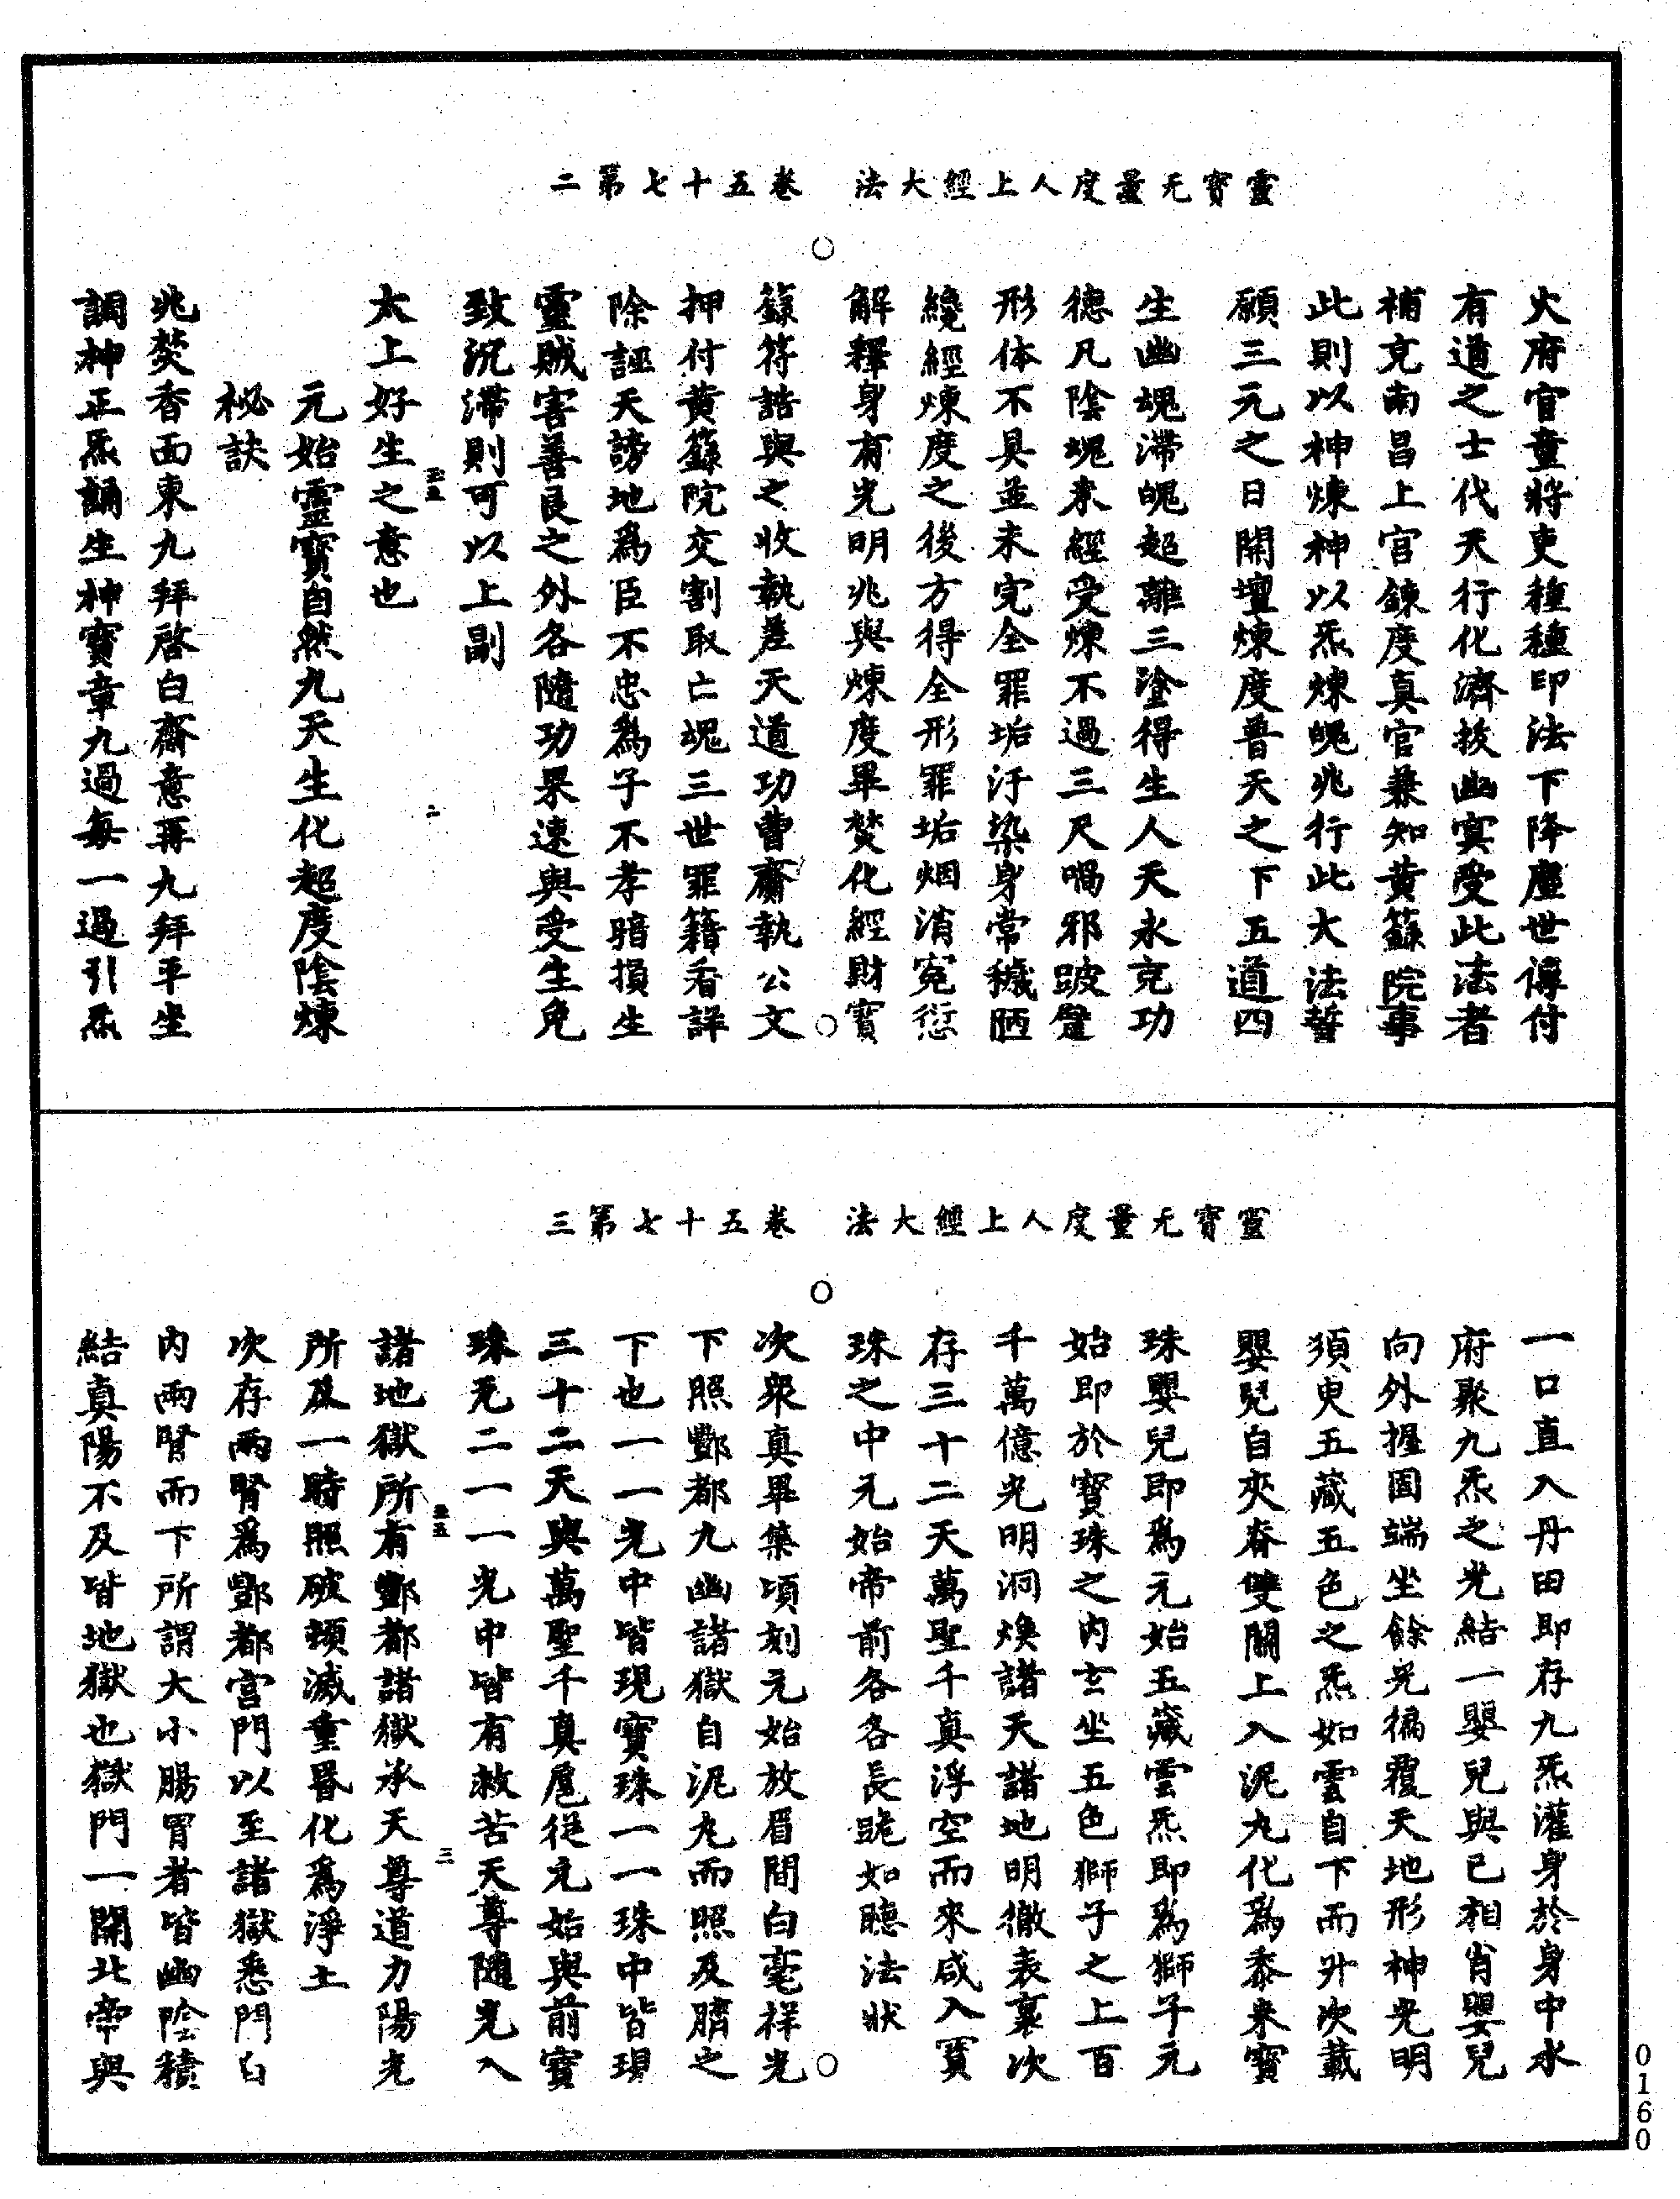 靈寶无量度人上經大法　卷五十七第二
火府官童將吏種種印法下降塵世傳付
有道之士代天行化濟拔幽冥受此法者
補充南昌上宮鍊度真官兼知黃籙院事
此則以神煉神以炁煉魄兆行此大法誓
願三元之日開壇煉度普天之下五道四
生幽魂滯魄超離三塗得生人天永克功
德凡陰魂來經受煉不過三尺喎邪跛躄
形体不具並未完全罪垢汙染身常穢陋
纔經煉度之後方得全形罪垢烟消冤愆
解釋身有光明兆與煉度畢焚化經財寶
籙符誥與之收執差天道功曹齎執公文
押付黃籙院交割取亡魂三世罪籍看詳
除誣天謗地為臣不忠為子不孝暗損生
靈賊害善良之外各隨功果速與受生免
致沉滯則可以上副
太上好生之意也
元始靈寶自然九天生化超度陰煉
祕訣
兆焚香面東九拜啓白齋意再九拜平坐
調神正炁誦生神寶章九過每一過引炁
靈寶无量度人上經大法　卷五十七第三
一口直入丹田即存九炁灌身於身中水
府聚九炁之光結一嬰兒與已相肖嬰兒
向外握固端坐餘光徧覆天地形神光明
須臾五藏五色之炁如雲自下而升次載
嬰兒自夾脊雙關上入泥丸化為黍米寶
珠嬰兒即為元始五藏雲炁即為獅子元
始即於寶珠之內玄坐五色獅子之上百
千萬億光明洞煥諸天諸地明徹表裏次
存三十二天萬聖千真浮空而來咸入寶
珠之中元始帝前各各長跪如聽法狀
次衆真畢集頃刻元始放眉間白毫祥光
下照酆都九幽諸獄自泥丸而照及臍之
下也一一光中皆現寶珠一一珠中皆現
三十二天與萬聖千真扈從元始與前寶
珠无二一一光中皆有救苦天尊隨光入
諸地獄所有酆都諸獄承天尊道力陽光
所及一時照破頓滅重昬化為淨土
次存兩腎為酆都宮門以至諸獄悉門自
內兩腎而下所謂大小腸胃者皆幽陰積
結真陽不及皆地獄也獄門一開北帝與
0160